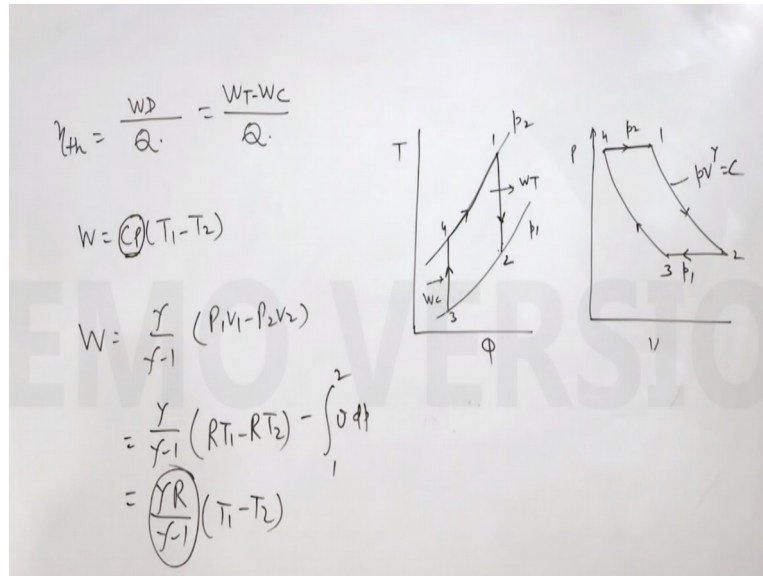 ηth = WD/Q. = WT-WC/Q.
W = CP (T1-T2)
W = γ/γ-1 (P1V1-P2V2)
= γ/γ-1 (RT1-RT2) - ∫₁² v dp
= γR/γ-1 (T1-T2)
T
1
p2
WT
4
2
p1
WC
3
Φ
P
4
p2
1
pVγ=C
3
p1
2
V
EMO VERSIO